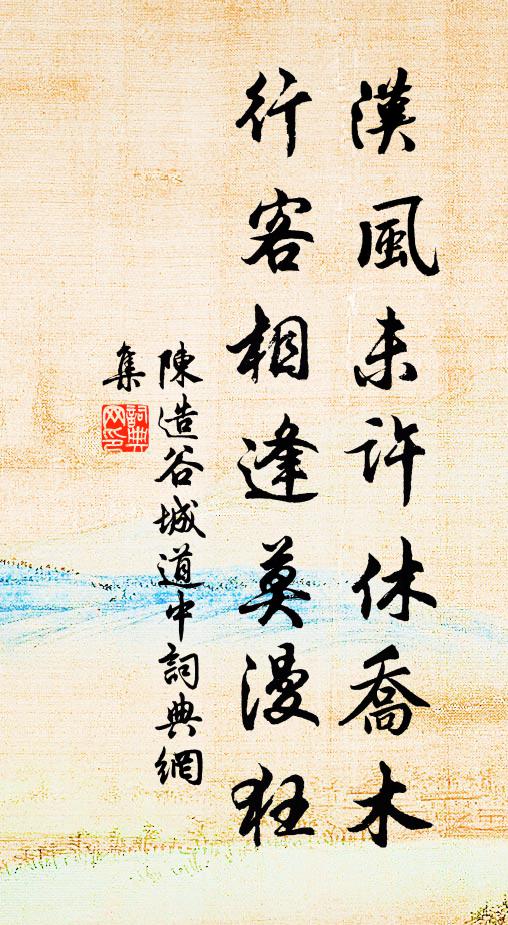 漢風未許休喬木
行客相逢莫漫狂
陳造谷城道中詞典網
集
詞典网印